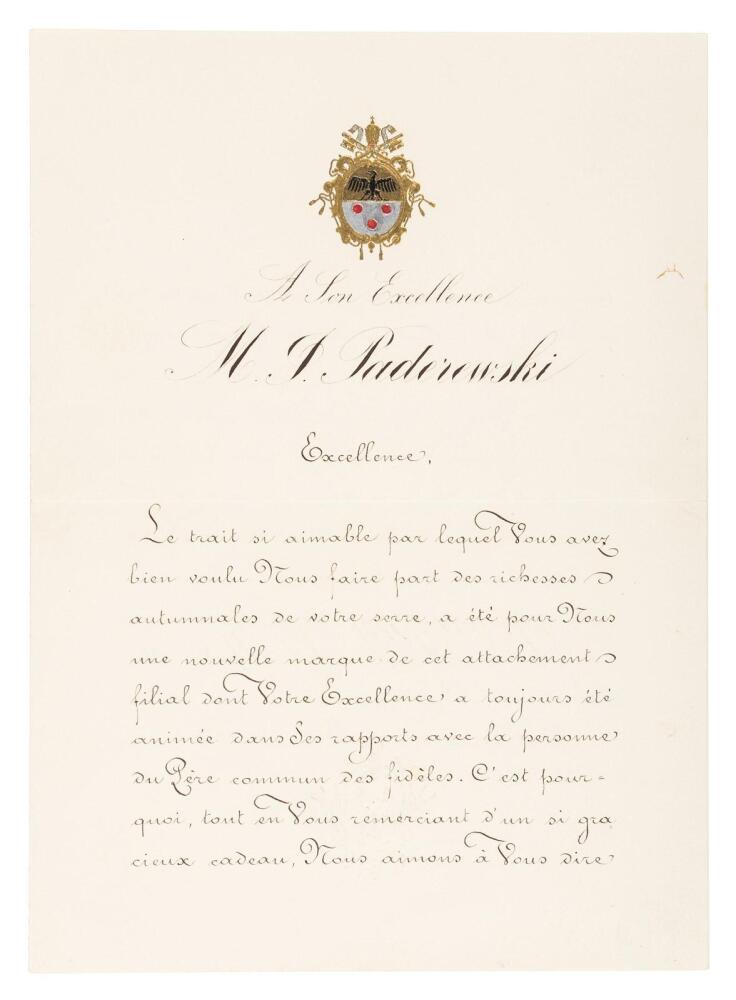 A Son Excellence
M. I. Paderewski
Excellence,
Le trait si aimable par lequel Vous avez
bien voulu Nous faire part des richesses
autumnales de votre serre, a été pour Nous
une nouvelle marque de cet attachement
filial dont Votre Excellence a toujours été
animée dans Ses rapports avec la personne
du Père commun des fidèles. C'est pour=
quoi, tout en Vous remerciant d'un si gra
cieux cadeau, Nous aimons à Vous dire